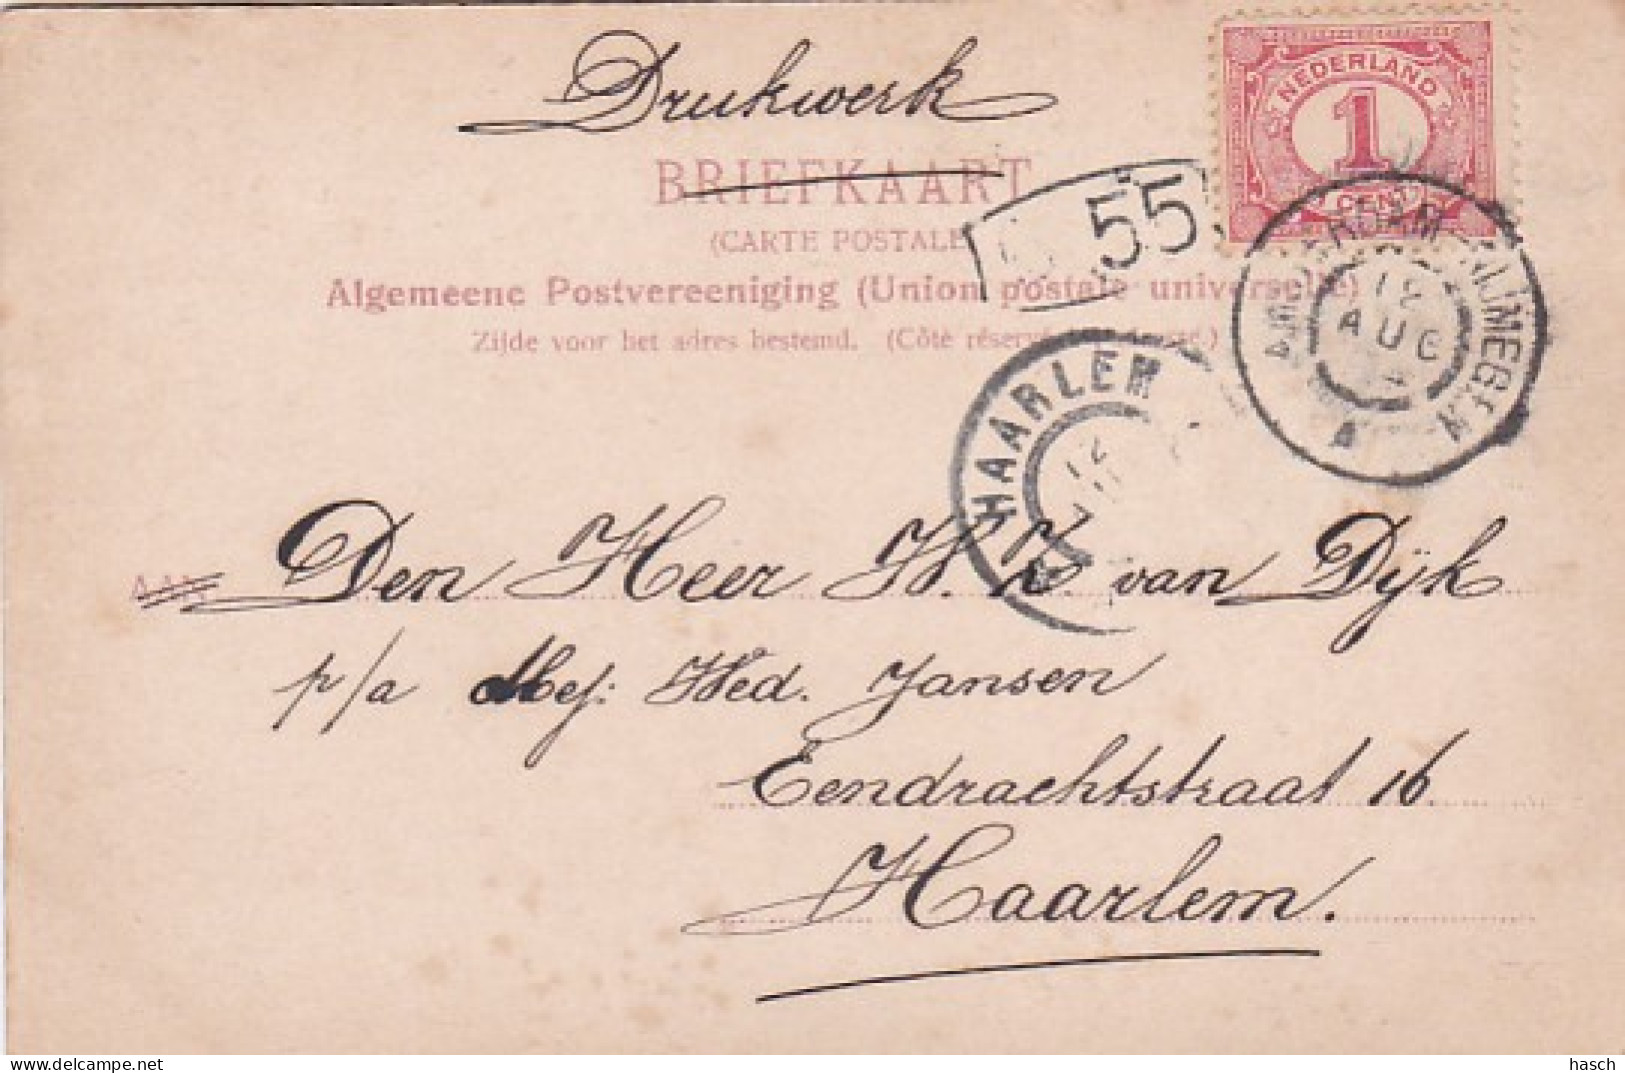 Drukwerk
NEDERLAND
1
CENT
BRIEFKAART
55
(CARTE POSTALE
Algemeene Postvereeniging (Union postale universelle)
Zijde voor het adres bestemd. (Côté réservé
AMSTERDAM-NIJMEGEN
12
AUG
A
HAARLEM
12
AAN
Den Heer W. K. van Dijk
p/a Mej: Wed. Jansen
Eendrachtstraat 16.
Haarlem.
hasch